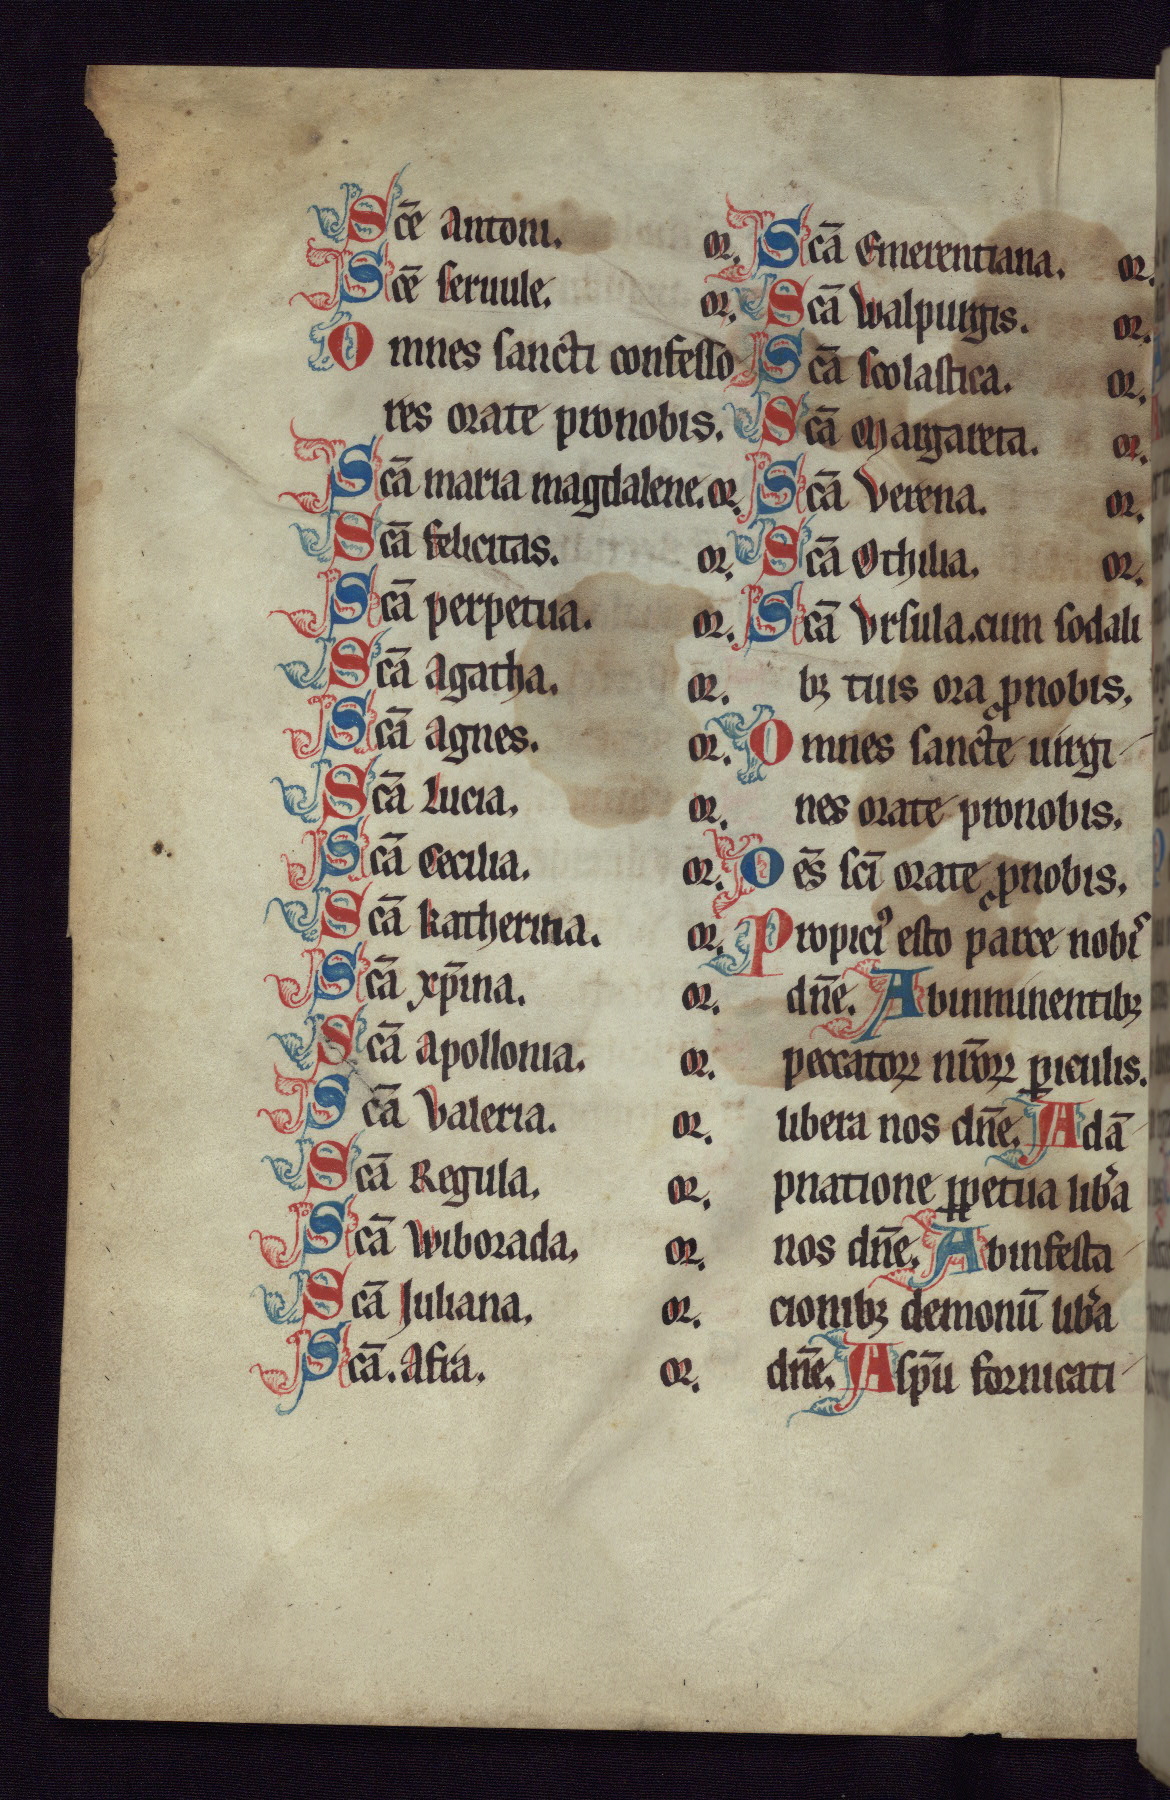 Scē Antoni. or.
Scē seruule. or.
Omnes sancti confesso
res orate pronobis.
Scā maria magdalene. or.
Scā felicitas. or.
Scā perpetua. or.
Scā Agatha. or.
Scā Agnes. or.
Scā Lucia. or.
Scā Cecilia. or.
Scā Katherina. or.
Scā xp̄ina. or.
Scā Apollonia. or.
Scā Valeria. or.
Scā Regula. or.
Scā Wiborada. or.
Scā Juliana. or.
Scā. Afra. or.
Scā Emerentiana. or.
Scā Walpurgis. or.
Scā Scolastica. or.
Scā Margareta. or.
Scā Verena. or.
Scā Othilia. or.
Scā Vrsula. cum sodali
bꝫ tuis ora ꝓnobis.
Omnes sancte uirgi
nes orate pronobis.
Oēs scī orate ꝓnobis.
Propiciꝰ esto parce nobis
dn̄e. Abinminentibꝫ
peccatoꝝ nr̄oꝝ ꝑiculis.
libera nos dn̄e. Adā
pnatione ꝑpetua lib̾a
nos dn̄e. Abinfesta
cionibꝫ demonū lib̾a
dn̄e. Asp̄u fornicati